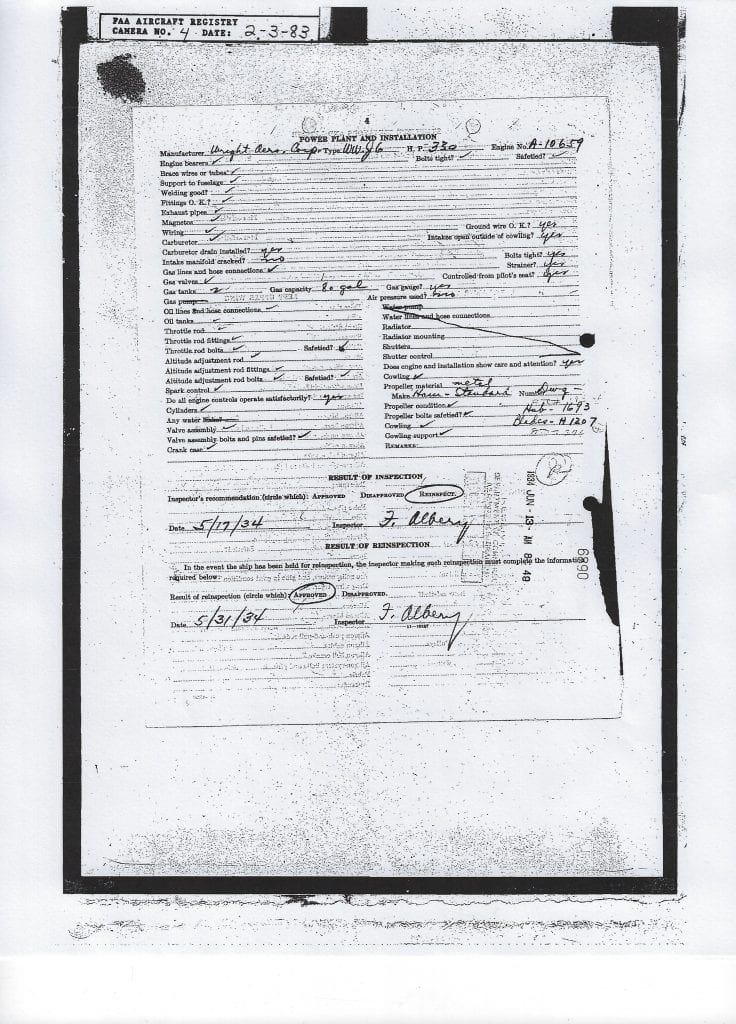 FAA AIRCRAFT REGISTRY
CAMERA NO. 4 DATE: 2-3-83
4
POWER PLANT AND INSTALLATION
Manufacturer Wright Aero. Corp. Type WW.J6 H. P. 330 Engine No. A-10659
Engine bearers ✓ Bolts tight? ✓ Safetied? ✓
Brace wires or tubes ✓
Support to fuselage ✓
Welding good? ✓
Fittings O. K.? ✓
Exhaust pipes ✓
Magnetos ✓
Wiring ✓ Ground wire O. K.? yes
Carburetor ✓ Intakes open outside of cowling? yes
Carburetor drain installed? yes
Intake manifold cracked? no Bolts tight? yes
Gas lines and hose connections ✓ Strainer? yes
Gas valves ✓ Controlled from pilot's seat? yes
Gas tanks 2 Gas capacity 80 gal Gas gauge? yes
Gas pump Air pressure used? no
Oil lines and hose connections ✓ Water pump
Oil tanks ✓ Water lines and hose connections
Throttle rod ✓ Radiator
Throttle rod fittings ✓ Radiator mounting
Throttle rod bolts ✓ Safetied? ✓ Shutters
Altitude adjustment rod ✓ Shutter control
Altitude adjustment rod fittings ✓ Does engine and installation show care and attention? yes
Altitude adjustment rod bolts ✓ Safetied? ✓ Cowling ✓
Spark control ✓ Propeller material metal
Do all engine controls operate satisfactorily? yes Make Ham-Standard Number Dwg-
Cylinders ✓ Propeller condition ✓ Hub-1693
Any water leaks? Propeller bolts safetied? ✓ Blades-A1207
Valve assembly ✓ Cowling ✓
Valve assembly bolts and pins safetied? ✓ Cowling support ✓
Crank case ✓ REMARKS
RESULT OF INSPECTION
Inspector's recommendation (circle which): APPROVED DISAPPROVED REINSPECT.
Date 5/17/34 Inspector F. Albery
RESULT OF REINSPECTION
In the event the ship has been held for reinspection, the inspector making such reinspection must complete the information
required below:
Result of reinspection (circle which): APPROVED DISAPPROVED.
Date 5/31/34 Inspector F. Albery
1934 JUN -13- AM 8 49